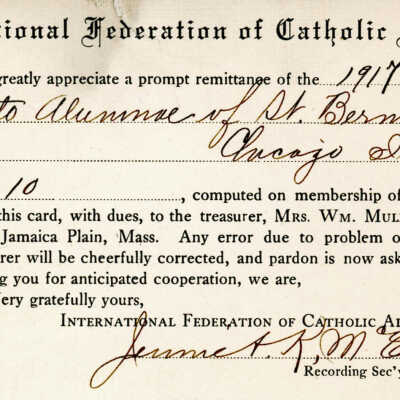 tional Federation of Catholic A
greatly appreciate a prompt remittance of the 1917
to Alumnae of St. Bern
Chicago Il
10, computed on membership of
this card, with dues, to the treasurer, Mrs. Wm. Mul
Jamaica Plain, Mass. Any error due to problem o
rer will be cheerfully corrected, and pardon is now ask
ng you for anticipated cooperation, we are,
Very gratefully yours,
International Federation of Catholic Al
Recording Sec'y